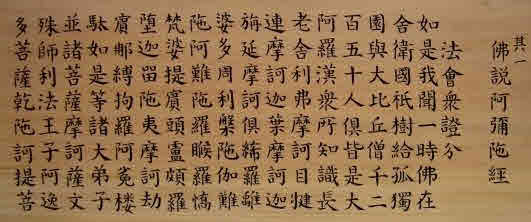 其一
佛説阿彌陀經
法會衆證分
如是我聞一時佛在
舍衛國祇樹給孤獨
園與大比丘僧千二
百五十人俱皆是大
阿羅漢衆所知識長
老舍利弗摩訶目犍
連摩訶迦葉摩訶迦
旃延摩訶俱絺羅離
婆多周利槃陀伽難
陀阿難陀羅睺羅憍
梵婆提賓頭盧頗羅
墮迦留陀夷摩訶劫
賓那縛拘羅阿菟樓
馱如是等諸大弟子
並諸菩薩摩訶薩文
殊師利法王子阿逸
多菩薩乾陀訶提菩